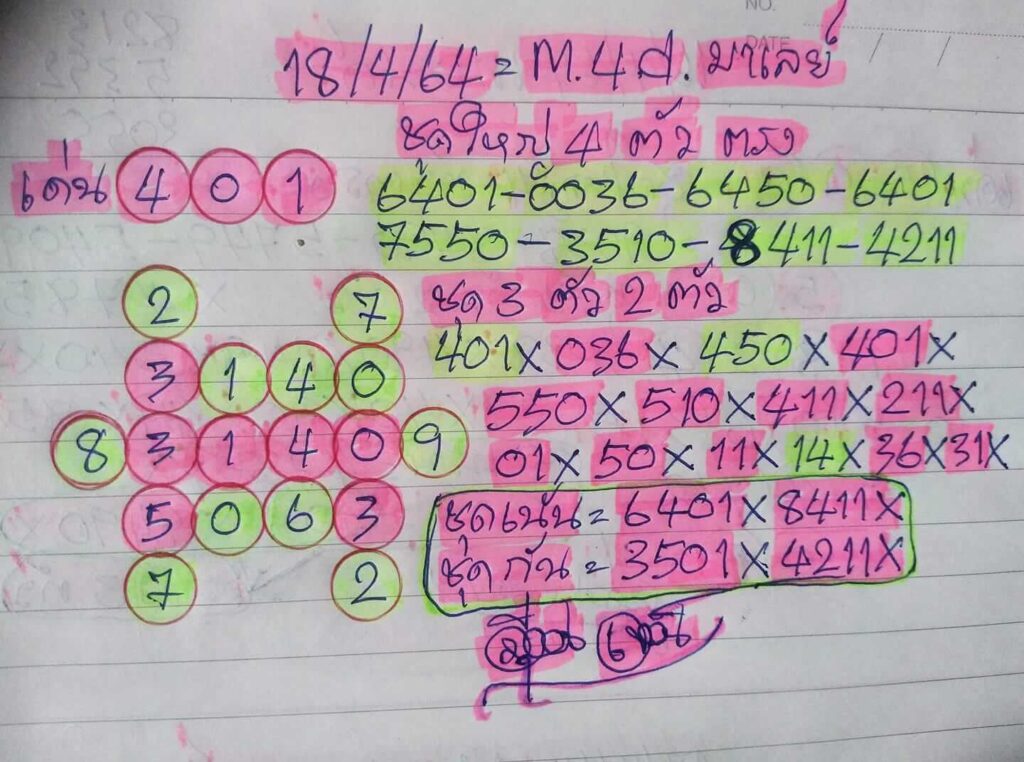 NO.
DATE
18/4/64 = M.4d. มาเลย์
ชุดใหญ่ 4 ตัว ตรง
เด่น 4 0 1
6401-0036-6450-6401
7550-3510-8411-4211
2 7
3 1 4 0
8 3 1 4 0 9
5 0 6 3
7 2
ชุด 3 ตัว 2 ตัว
401x 036x 450x 401x
550x 510x 411x 211x
01x 50x 11x 14x 36x 31x
ชุดเน้น = 6401x 8411x
ชุดกัน = 3501x 4211x